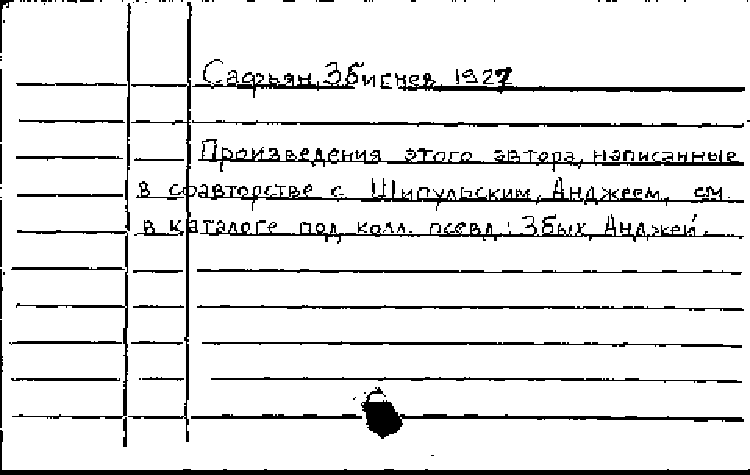 Сафьян, Збигнев 1927
Произведения этого автора, написанные
в соавторстве с Шипульским, Анджеем, см.
в каталоге под колл. псевд.: Збых, Анджей.